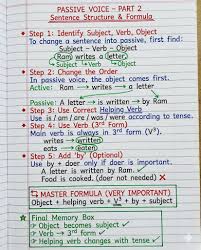 PASSIVE VOICE – PART 2
Sentence Structure & Formula
Step 1: Identify Subject, Verb, Object
To change a sentence into passive, first find:
Subject – Verb – Object
Ram writes a letter
Subject Verb Object
Step 2: Change the Order
In passive voice, the object comes first.
Active: Ram → writes → a letter
Passive: A letter → is written → by Ram
Step 3: Use Correct Helping Verb
Use is / am / are / was / were according to tense.
Step 4: Use Verb (3rd Form)
Main verb is always in 3rd form (V³).
writes → written
eats → eaten
Step 5: Add 'by' (Optional)
Use by + doer only if doer is important.
A letter is written by Ram.
Food is cooked. (doer not needed)
MASTER FORMULA (VERY IMPORTANT)
Object + helping verb + V³ + by + subject
Final Memory Box
Object becomes subject
Verb → 3rd form
Helping verb changes with tense